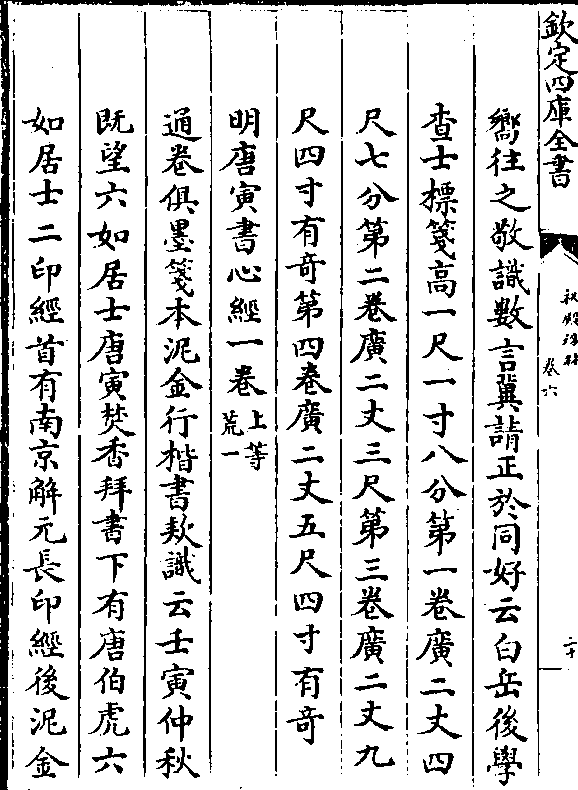 欽定四庫全書
秘殿珠林
卷六
二十
嚮往之敬識數言冀請正於同好云白岳後學
查士標箋高一尺一寸八分第一卷廣二丈四
尺七分第二卷廣二丈三尺第三卷廣二丈九
尺四寸有奇第四卷廣二丈五尺四寸有奇
明唐寅書心經一卷上等荒一
通卷俱墨箋本泥金行楷書欵識云壬寅仲秋
既望六如居士唐寅焚香拜書下有唐伯虎六
如居士二印經首有南京解元長印經後泥金